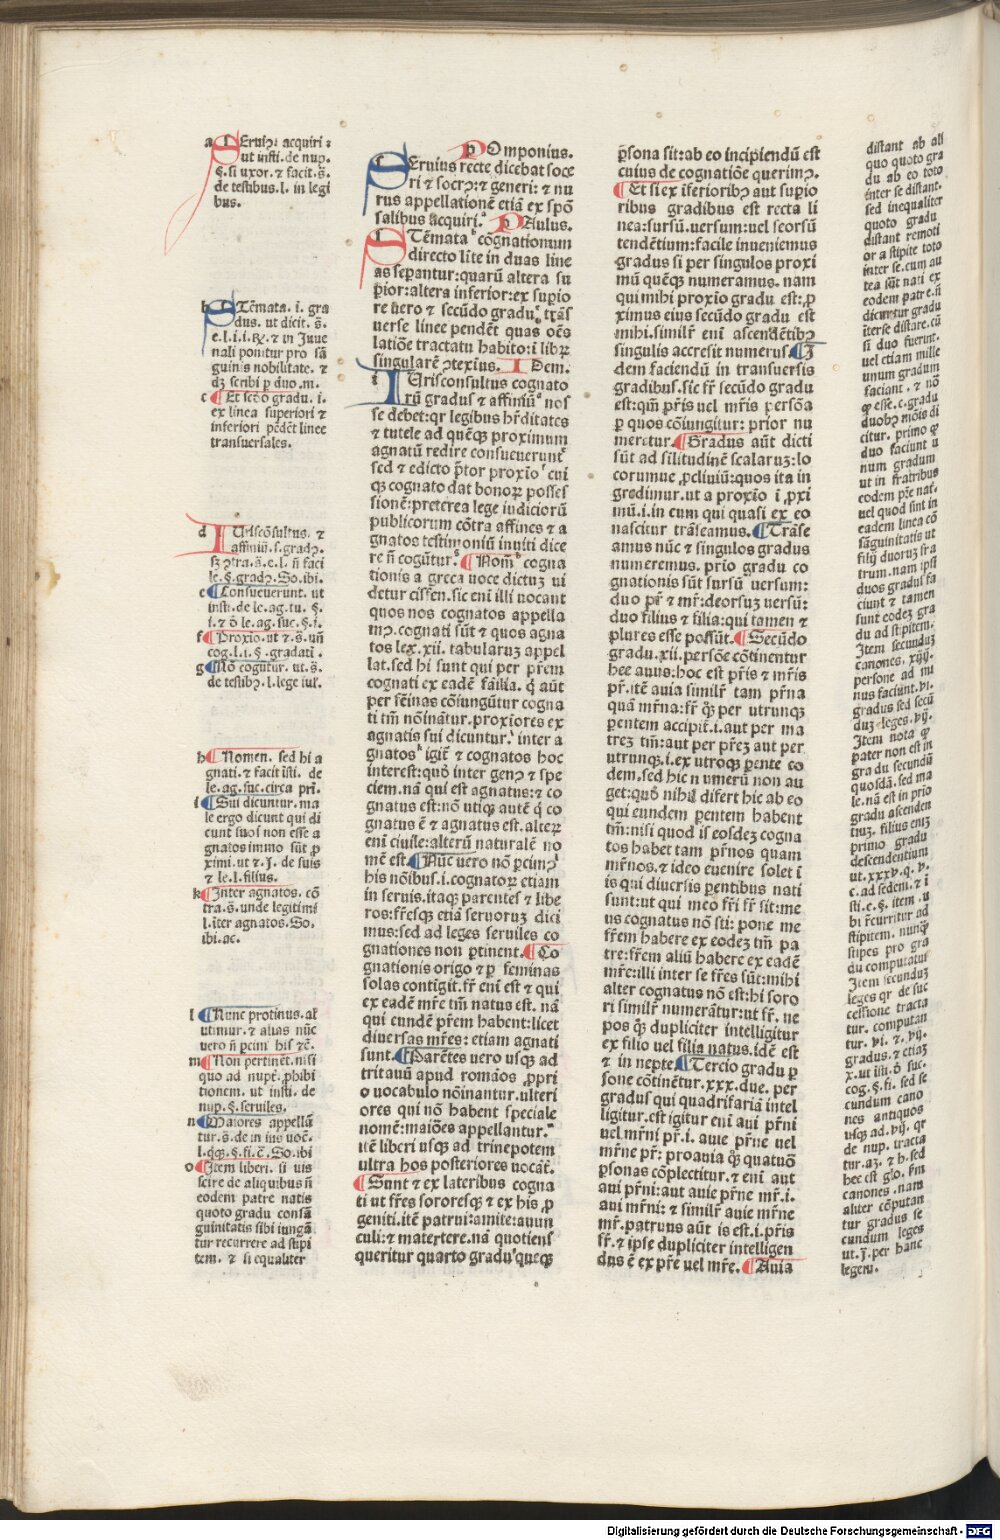 a Eruiꝰ: acquiri:
ut insti. de nup.
§. si uxor. ⁊ facit. s̄.
de testibus. l. in legi
bus.
b Tēmata. i. gra
dus. ut dicit. s̄.
nali ponitur pro sā
guinis nobilitate. ⁊
dꝫ scribi ꝑ duo .m.
c Et scđo gradu. i.
ex linea superiori ⁊
inferiori pēdēt linee
transuersales.
d Uriscōsultus. ⁊
affiniū. s. gradꝰ.
le. §. gradꝰ. So. ibi.
e Consueuerunt. ut
insti. de le. ag. tu. §.
i. ⁊ ō le. ag. suc. §. i.
f Proxio. ut ⁊ s̄. un̄
cog. l. i. §. gradati.
g Nō cogūtur. ut. s̄.
de testibꝰ. l. lege iul.
h Nomen. sed hi a
gnati. ⁊ facit īsti. de
le. ag. suc. circa pri.
i Sui dicuntur. ma
le ergo dicunt qui di
cunt suos non esse a
gnatos immo sūt ꝓ
ximi. ut ⁊ .j. de suis
⁊ le. l. filius.
k Inter agnatos. cō
tra. s̄. unde legitimi
l. īter agnatos. So.
ibi. ac.
l Nunc protinus. al
utimur. ⁊ alias nūc
vero n̄ ꝑcimꝰ his ⁊c̄.
m Non pertinēt. nisi
quo ad nupt. ꝓhibi
tionem. ut insti. de
nup. §. seruiles.
n Maiores appellā
tur. s̄. de in ius uoc̄.
l. q̄qꝫ. §. fi. c̄. So. ibi
o Item liberi. si uis
scire de aliquibus n̄
eodem patre natis
quoto gradu consā
guinitatis sibi iungā
tur recurrere ad stipi
tem. ⁊ si equaliter
P Omponius.
Eruius recte dicebat soce
ri ⁊ socrꝰ: ⁊ generi: ⁊ nu
rus appellationē etiā ex spō
salibus acquiri. P Aulus.
Tēmata cōgnationum
directo lite in duas line
as sepantur: quarū altera su
ꝑior: altera inferior: ex supio
re uero ⁊ secūdo gradu trās
uerse linee pendēt quas oēs
latiōe tractatu habito: i libꝝ
singularē ꝯtexius. I Dem.
Urisconsultus cognato
rū gradus ⁊ affiniū nos
se debet: qr legibus hrditates
⁊ tutele ad quēqꝫ proximum
agnatū redire consueuerunt
sed ⁊ edicto ꝑtor proxio cui
qꝫ cognato dat bonoꝝ posses
sionē: preterea lege iudicioꝝ
publicorum cōtra affines ⁊ a
gnatos testimoniū inuiti dice
re n̄ cogūtur. Nom̄ cogna
tionis a greca uoce dictuꝫ ui
detur cissēn. sic eni illi uocant
quos nos cognatos appella
mꝰ. cognati sūt ⁊ quos agna
tos lex. xii. tabularuꝫ appel
lat. sed hi sunt qui per p̄rem
cognati ex eadē familia. q̄ aūt
per fēinas cōiungūtur cogna
ti tm̄ nōinātur. proxiores ex
agnatis sui dicuntur. inter a
gnatos igit̄ ⁊ cognatos hoc
interest: quō inter genꝰ ⁊ spe
ciem. nā qui est agnatus: ⁊ co
gnatus est: nō utiqꝫ autē q̄ co
gnatus ē ⁊ agnatus est. alteꝝ
eni ciuile: alterū naturalē no
mē est. Nūc vero nō ꝑcimꝰ
his nōibus. i. cognatoꝝ etiam
in seruis. itaqꝫ parentes ⁊ libe
ros: fr̄esqꝫ etiā seruoruꝫ dici
mus: sed ad leges seruiles co
gnationes non ꝑtinent. Co
gnationis origo ⁊ ꝑ feminas
solas contigit. fr̄ eni est ⁊ qui
ex eadē mr̄e tm̄ natus est. nā
qui eundē p̄rem habent: licet
diuersas mr̄es: etiam agnati
sunt. Parētes uero usqꝫ ad
tritauū apud romāos ꝓpri
o uocabulo nōinantur. ulteri
ores qui nō habent speciale
nomē: maiōes appellantur.
itē liberi usqꝫ ad trinepotem
ultra hos posteriores uocāt.
Sunt ⁊ ex lateribus cogna
ti ut fr̄es sororesqꝫ ⁊ ex his ꝓ
geniti. itē patrui: amite: auun
culi: ⁊ matertere. nā quotiens
queritur quarto gradu queqꝫ
ꝑsona sit: ab eo incipiendū est
cuius de cognatiōe querimꝰ.
Et si ex iferioribꝰ aut supio
ribus gradibus est recta li
nea: sursū. uersum: uel seorsū
tendētium: facile inueniemus
gradus si per singulos proxi
mū quēqꝫ numeramus. nam
qui mihi proxio gradu est: ꝓ
ximus eius secūdo gradu est
mihi. similr̄ eni ascendētibꝰ
singulis accresit numerus. I
dem faciendū in transuersis
gradibus. sic fr̄ secūdo gradu
est: qm̄ p̄ris uel mr̄is ꝑersōa
ꝑ quos cōiungitur: prior nu
meretur. Gradus aūt dicti
sūt ad silitudinē scalaruꝫ: lo
corumue ꝓcliuiū: quos ita in
gredimur. ut a proxio i ꝓxi
mū. i. in eum qui quasi ex eo
nascitur trāseamus. Trāse
amus nūc ⁊ singulos gradus
numeremus. prio gradu co
gnationis sūt sursū uersum:
duo pr̄ ⁊ mr̄: deorsuꝫ uersū:
duo filius ⁊ filia: qui tamen ⁊
plures esse possūt. Secūdo
gradu. xii. persōe cōtinentur
hec auus: hoc est p̄ris ⁊ mr̄is
pr̄. itē auia similr̄ tam pr̄na
quā mr̄na: fr̄ q̄ꝫ per utrunqꝫ
ꝑentem accipit̄. i. aut per ma
treꝫ tm̄: aut per pr̄eꝫ aut per
utrunqꝫ. i. ex utroqꝫ ꝑente eo
dem. sed hic numerū non au
get: quō nihil difert hic ab eo
qui eundem ꝑentem habent
tm̄: nisi quod is eosdeꝫ cogna
tos habet tam pr̄nos quam
mr̄nos. ⁊ ideo euenire solet i
is qui diuersis ꝑentibus nati
sunt: ut qui meo fr̄i fr̄ sit: me
us cognatus nō sit: pone me
fr̄em habere ex eodeꝫ tm̄ pa
tre: fr̄em aliū habere ex eadē
mr̄e: illi inter se fr̄es sūt: mihi
alter cognatus nō est: hi soro
ri similr̄ numerātur: ut fr̄. ne
pos qꝫ dupliciter intelligitur
ex filio vel filia natus. idē est
⁊ in nepte. Tercio gradu ꝑ
sone cōtinētur. xxx. due. per
gradus qui quadrifariā intel
ligitur. est igitur eni aui pr̄ni
uel mr̄ni pr̄. i. auie pr̄ne uel
mr̄ne pr̄: proauia q̄qꝫ quatuō
ꝑsonas cōplectitur. ⁊ eni aut
aui pr̄ni: aut auie pr̄ne mr̄. i.
aui mr̄ni: ⁊ similr̄ auie mr̄ne
mr̄. patruus aūt is est. i. p̄ris
fr̄. ⁊ ipse dupliciter intelligen
dus ē ex pr̄e uel mr̄e. Auia
distant ab ali
quo quoto gra
du ab eo toto
inter se distant.
sed inequaliter
quoto gradu
distant remoti
or a stipite toto
inter se. cum au
tea sūt nati ex
eodem patre. n̄
dicuntur gradu
īterse distare. cū
si duo fuerint.
uel etiam mille
unum gradum
faciant. ⁊ nō
citur. primo qꝫ
duo faciunt u
num gradum
ut in fratribus
eodem pr̄e nat.
uel quod sint in
eadem linea cō
sāguinitatis ut
filiꝫ duoruꝫ fra
trum. nam ipsi
duos gradus fa
ciunt ⁊ tamen
sunt eodeꝫ gra
du ad stipitem.
Item secundus
canones. xiiij.
persone ad mi
nus faciunt. vi.
gradus sed secū
duꝫ leges. vij.
Item nota qꝫ
pater non est in
gra du secundū
quosdā. sed ma
le. nā est in prio
gradu ascenden
tiuꝫ. filius eniꝫ
primo gradu
descendentium
ut. xxxv. q. v.
c. ad sedem. ⁊ i
sti. e. §. item. u
bi r̄currit̄ur ad
stipitem. nunqꝫ
stipes pro gra
du computatus
Item secunduꝫ
leges qr de suc
cessione tracta
tur. computan
tur. vi. ⁊. vij.
gradus. ⁊ etiaꝫ
x. ut īsti. ō suc.
cog. §. fi. sed se
cundum cano
nes antiquos
usqꝫ ad. vij. qr
de nup. tracta
tur. aꝫ. ⁊ h. sed
hec est glo. ẜm
canones. nam
aliter cōputan
tur gradus se
cundum leges
ut. j. per hanc
legem.
Digitalisierung gefördert durch die Deutsche Forschungsgemeinschaft - DFG